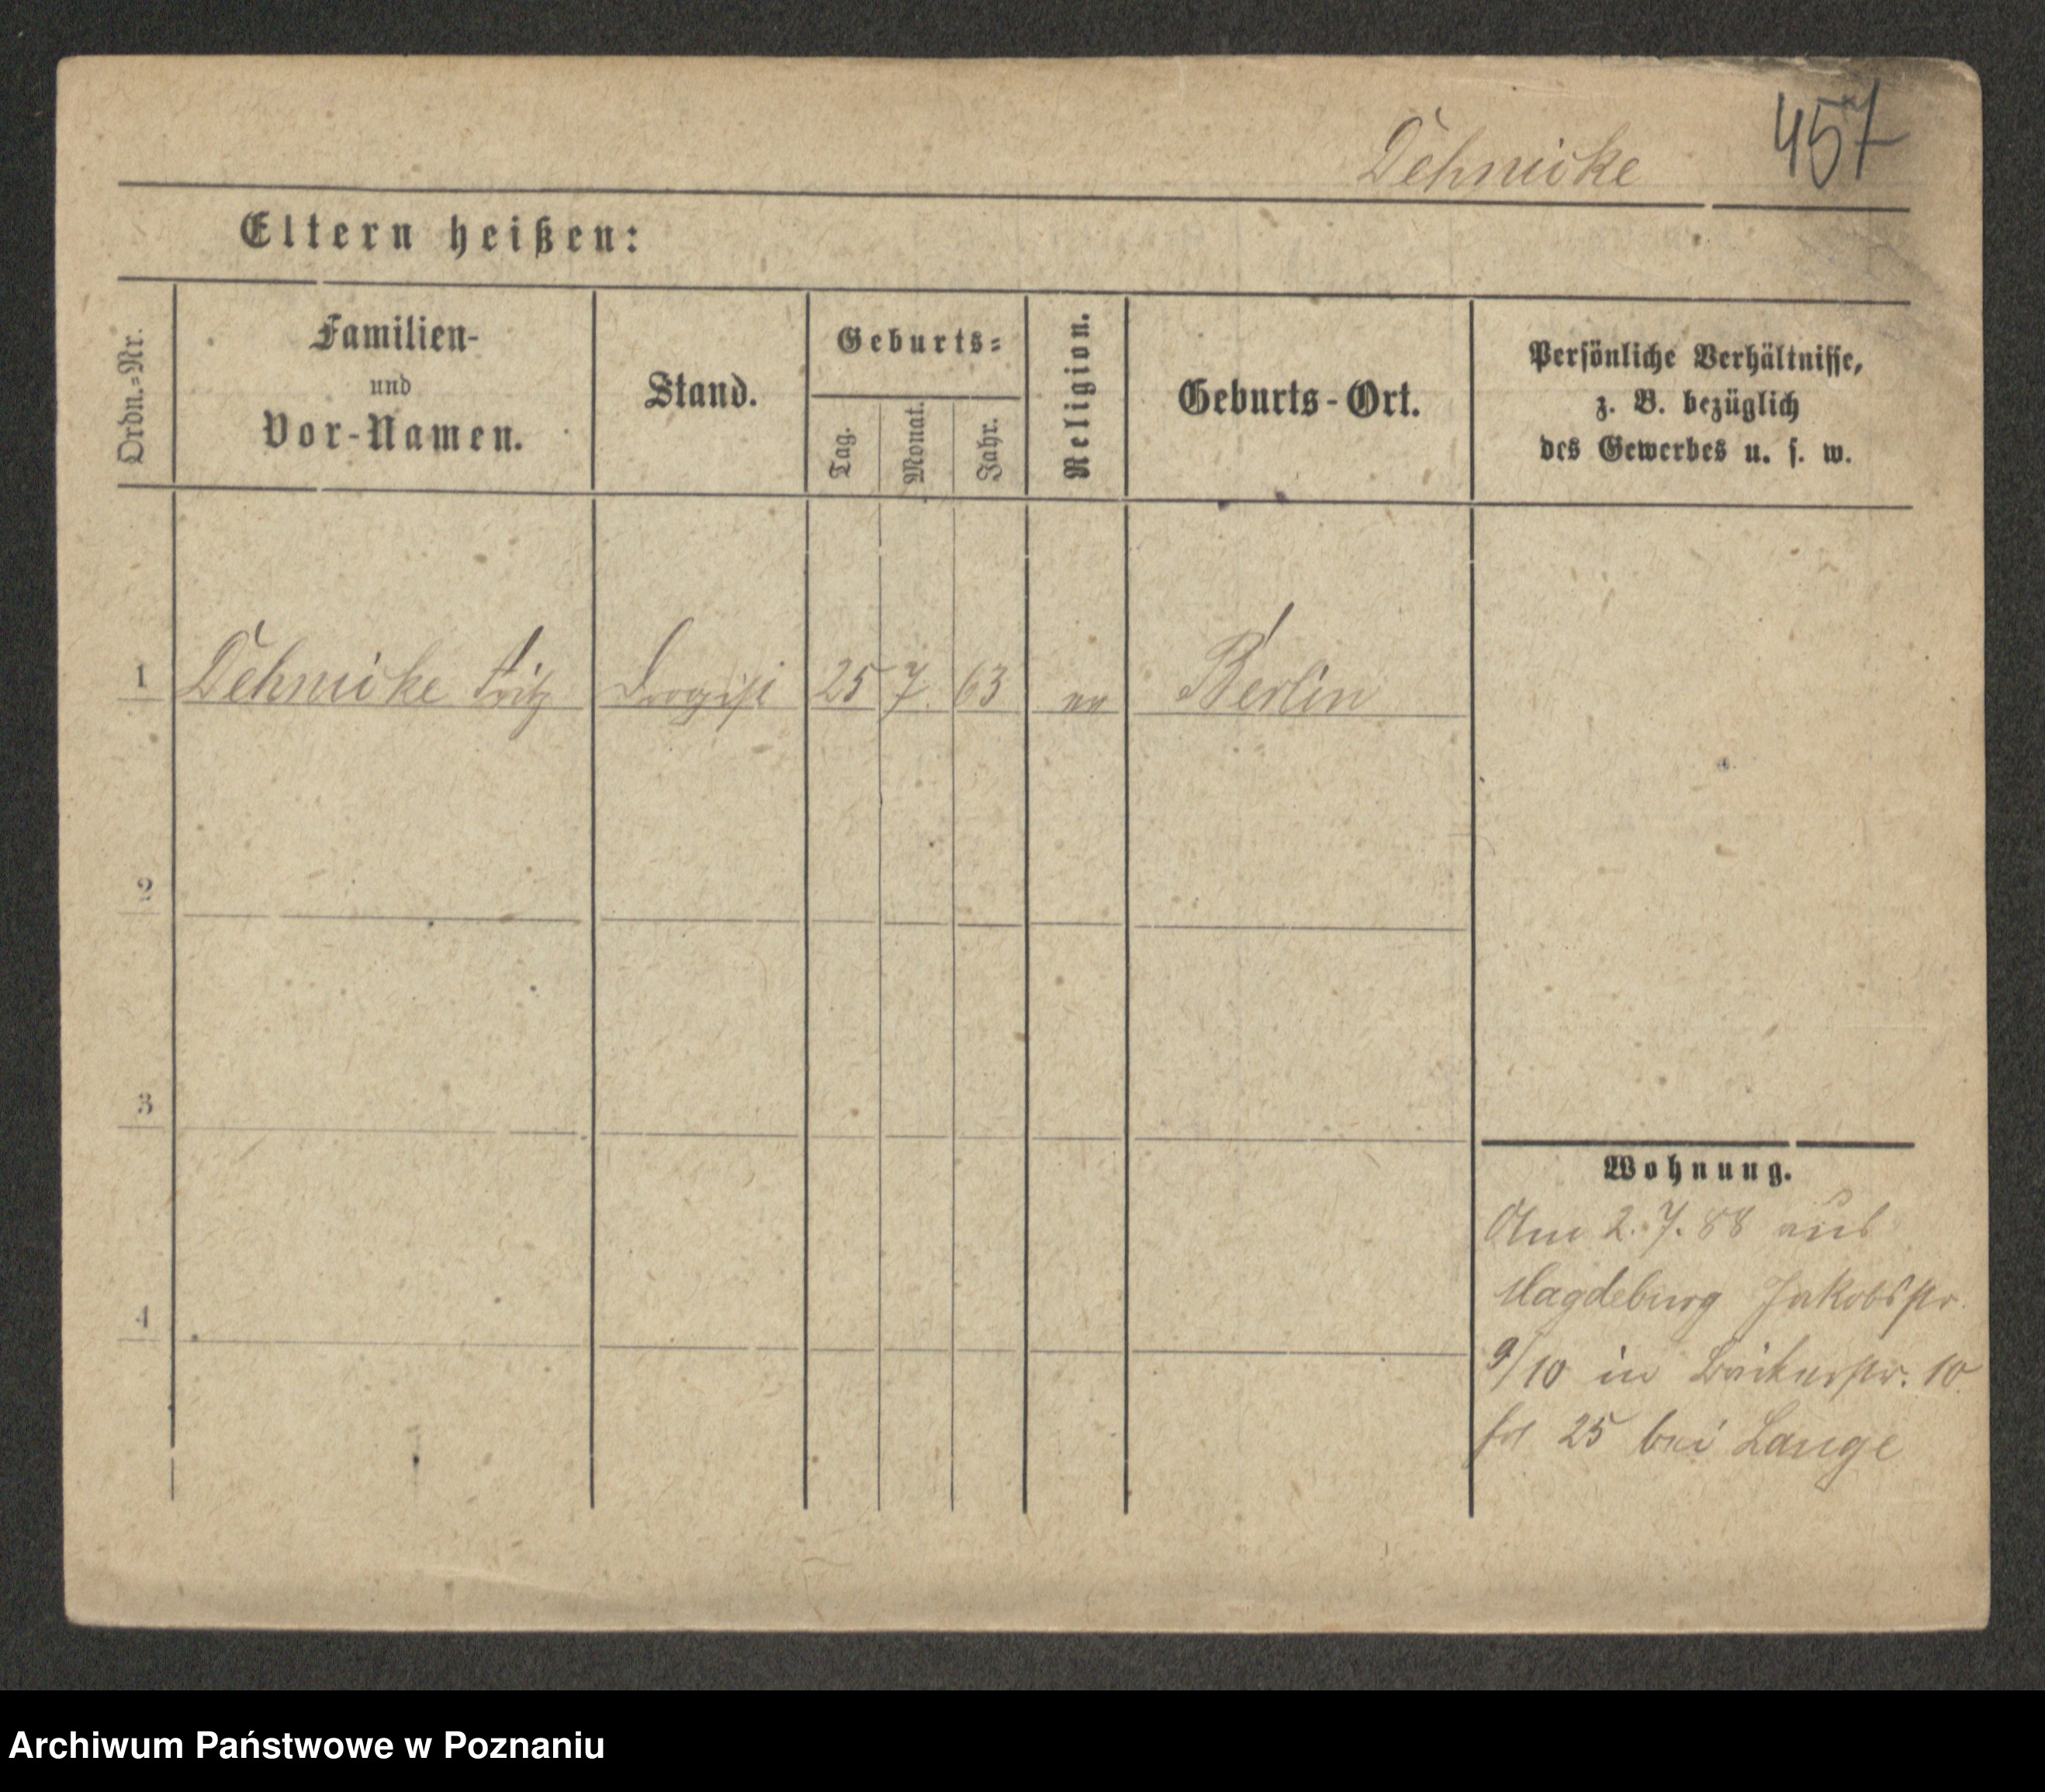 Dehnicke 457
Eltern heißen:
Ordn.-Nr.
Familien-
und
Vor-Namen.
Stand.
Geburts-
Tag.
Monat.
Jahr.
Religion.
Geburts-Ort.
Persönliche Verhältnisse,
z. B. bezüglich
des Gewerbes u. s. w.
1 Dehnicke Fritz Drogist 25 7. 63 ev Berlin
2
3
4
Wohnung.
Am 2.7.88 aus
Magdeburg Jakobsstr.
9/10 in Bäckerstr. 10
bei Lange
Archiwum Państwowe w Poznaniu